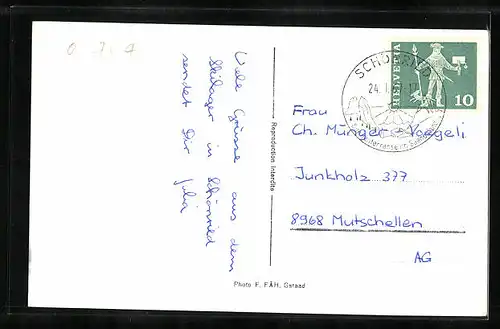 Viele Grüsse aus dem
Skilager in Schönried
sendet Dir
Julia
Reproduction interdite
Photo F. FÄH, Gstaad
SCHÖNRIED
24.1.
HELVETIA
10
Frau
Ch. Münger-Voegeli
Junkholz 377
8968 Mutschellen
AG